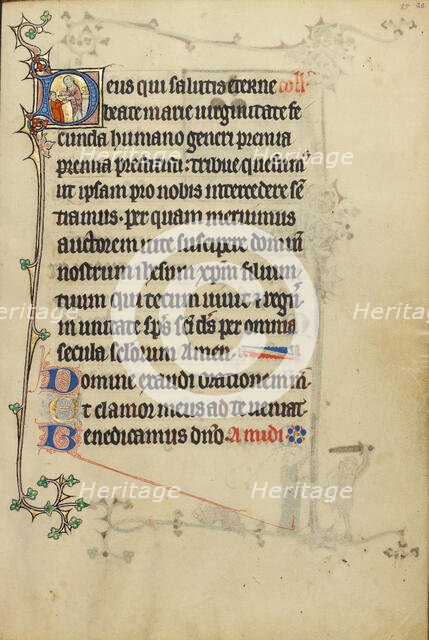 25 20
Deus qui salutis eterne coll'
beate marie uirginitate fe
cunda humano generi premia
premia prestitisti: tribue quesum'
ut ipsam pro nobis intercedere sen
tiamus. per quam meruimus
auctorem uite suscipere dominū
nostrum ihesum xp̄m filium
tuum qui tecum uiuit et regn̄
in unitate sp̄s sc̄i ds̄ per omnia
secula sc̄lorum Amen
Domine exaudi orationem m̄
Et clamor meus ad te ueniat
Benedicamus dn̄o. A midi
Heritage
Heritage
Heritage
Heritage
Heritage
Heritage
Heritage
Heritage